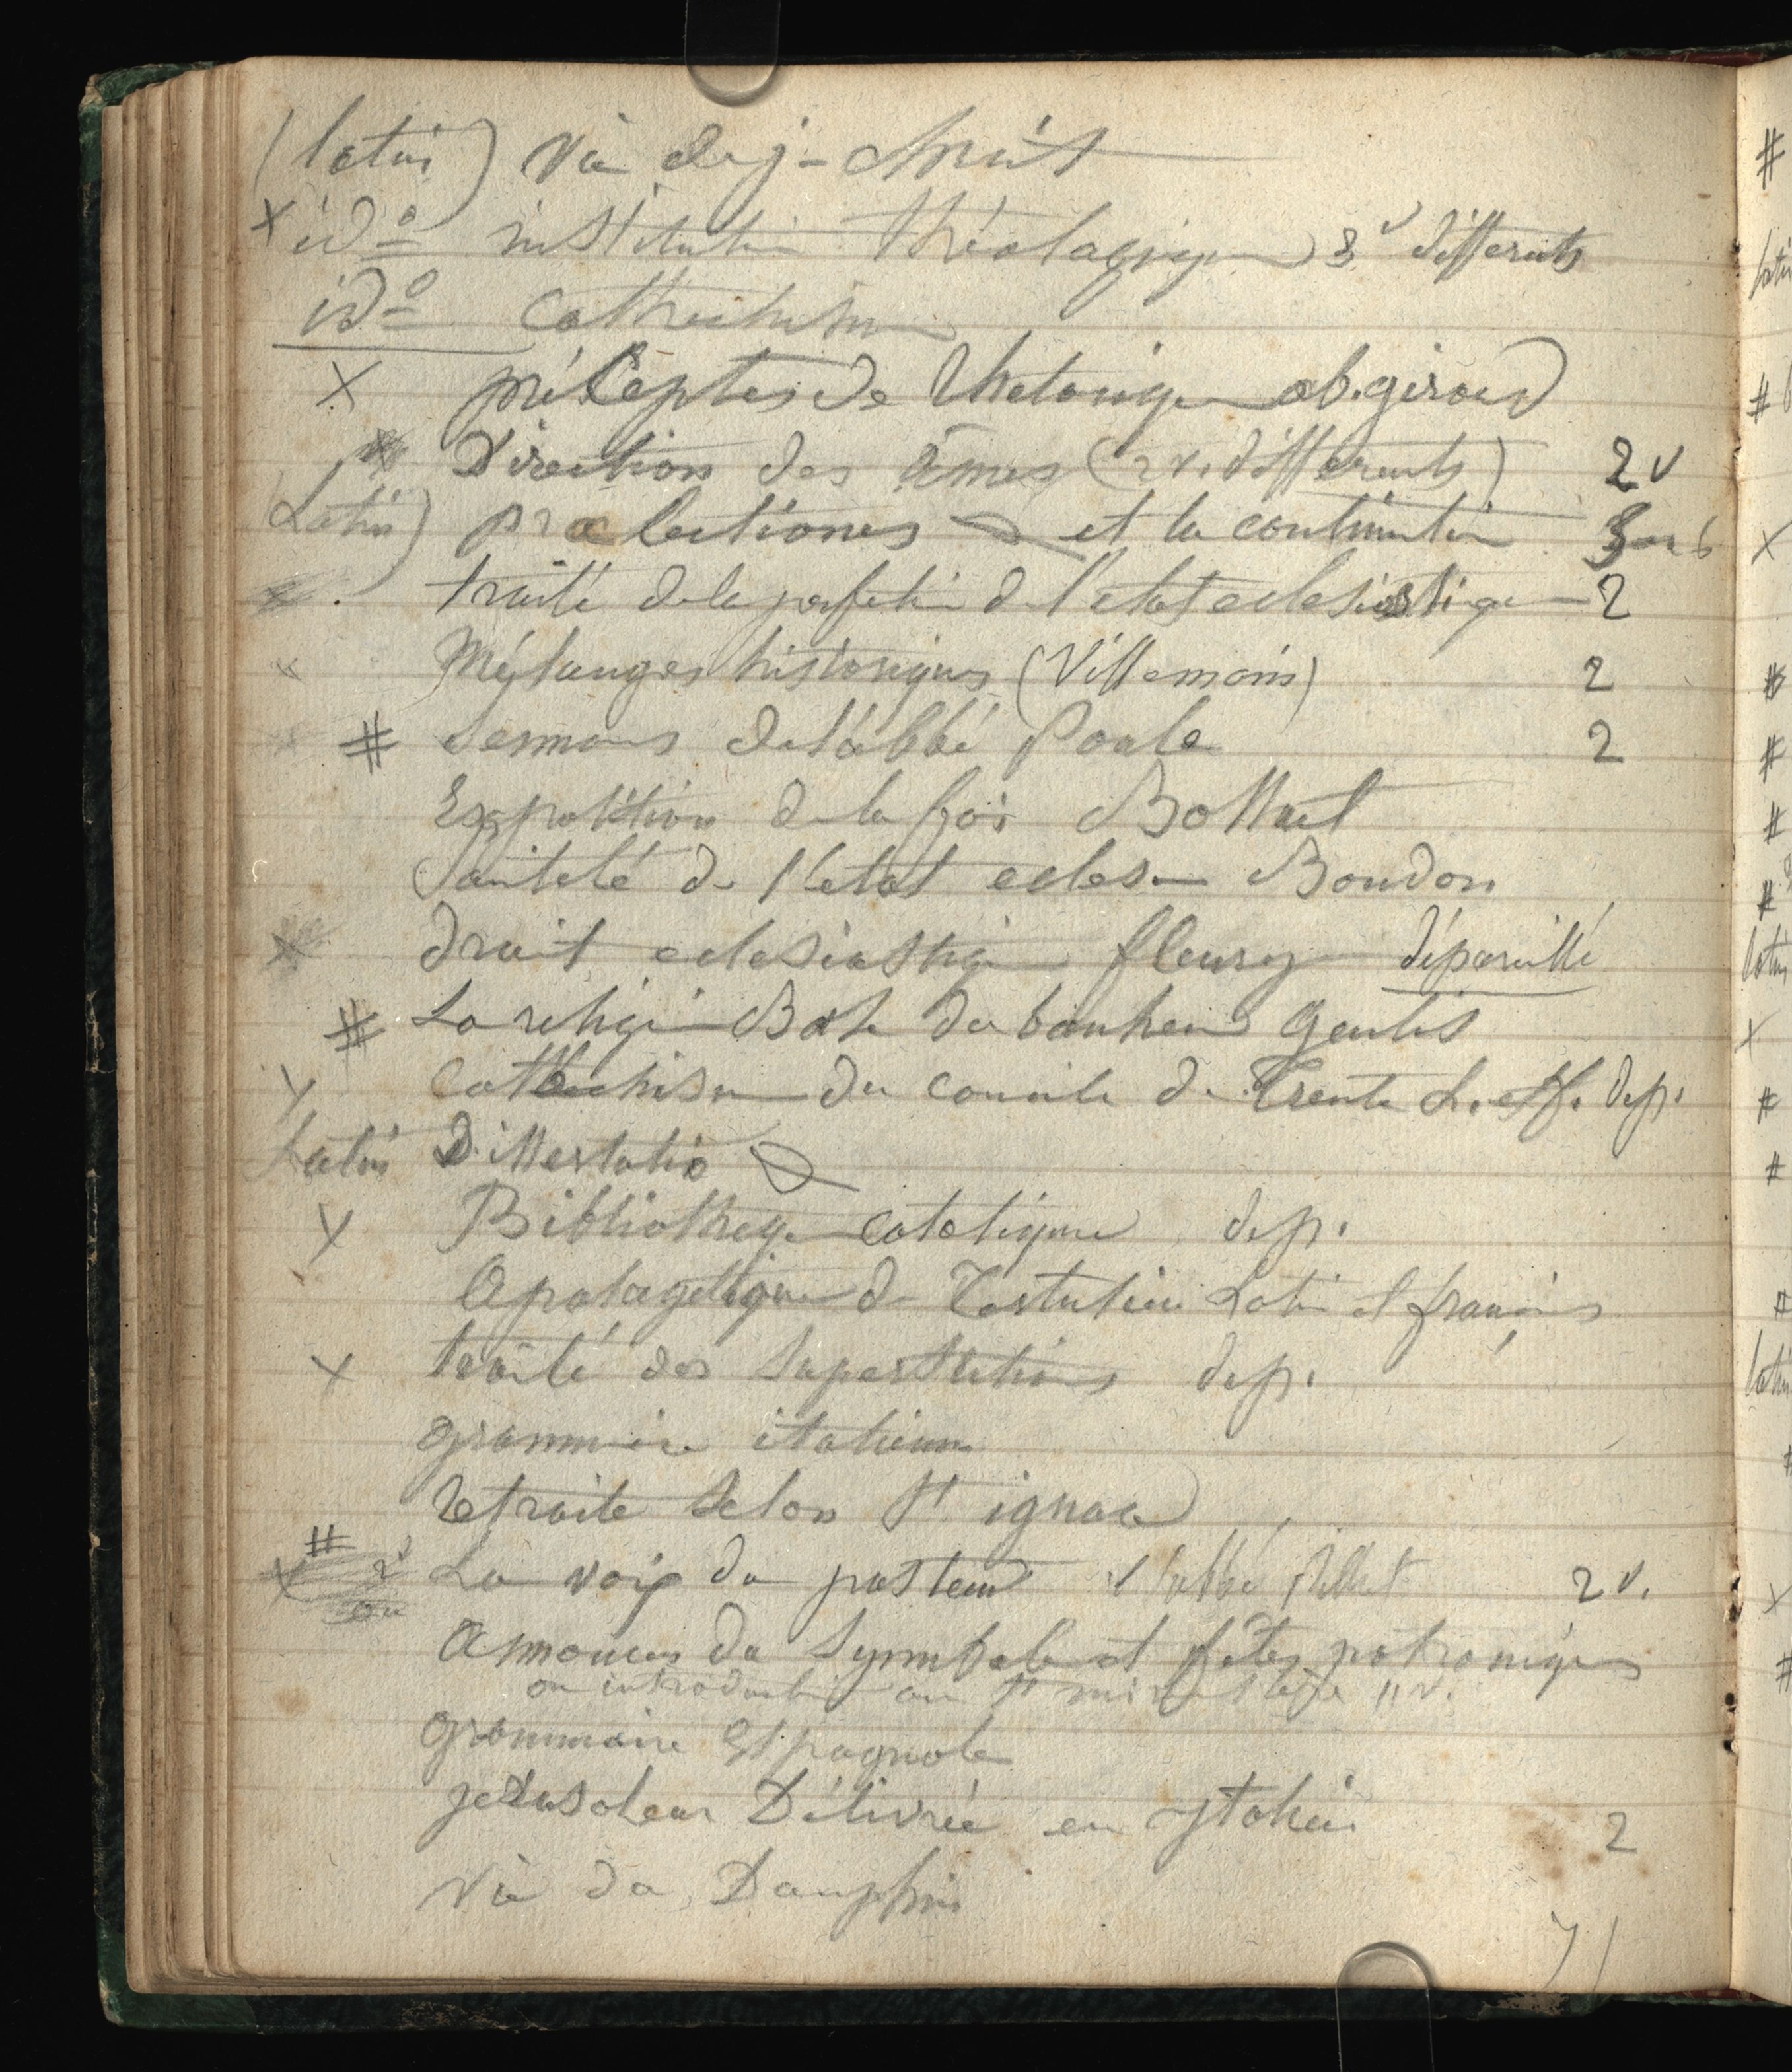 (latin) vie de j-christ
x id° institution théologique 3v differents
id° cathechisme
x préceptes de Rhetorique ab. giraud
Direction des âmes (2 v. differents) 2 v
Latin) prælectiones et la continuation 3 ou 6
traité de la perfection de l'etat eclesiastique 2
Mélanges historiques (Villemain) 2
# Sermons de l'abbé Poule 2
Exposition de la foi Bossuet
Sainteté de l'etat ecles. Boudon
x droit eclesiastique fleury dépareillé
# La religion Base du bonheur Genlis
x cathechisme du concile de Trente L. et f. dep.
Latin Dissertatio
x Bibliotheque catolique dep.
Apologetique de Tertulien Latin et français
x traité des superstitions dep.
grammaire italienne
retraite selon St ignace
# x 2v ou La voix du pasteur l'abbé 2 v.
Annonces du Symbole et fêtes patroniques
ou introduction au St ministère 11 v.
grammaire Espagnole
jerusalem Délivrée en ytalien 2
vie du Dauphin
71
#
#
x
#
#
#
#
x
#
#
#
x
#